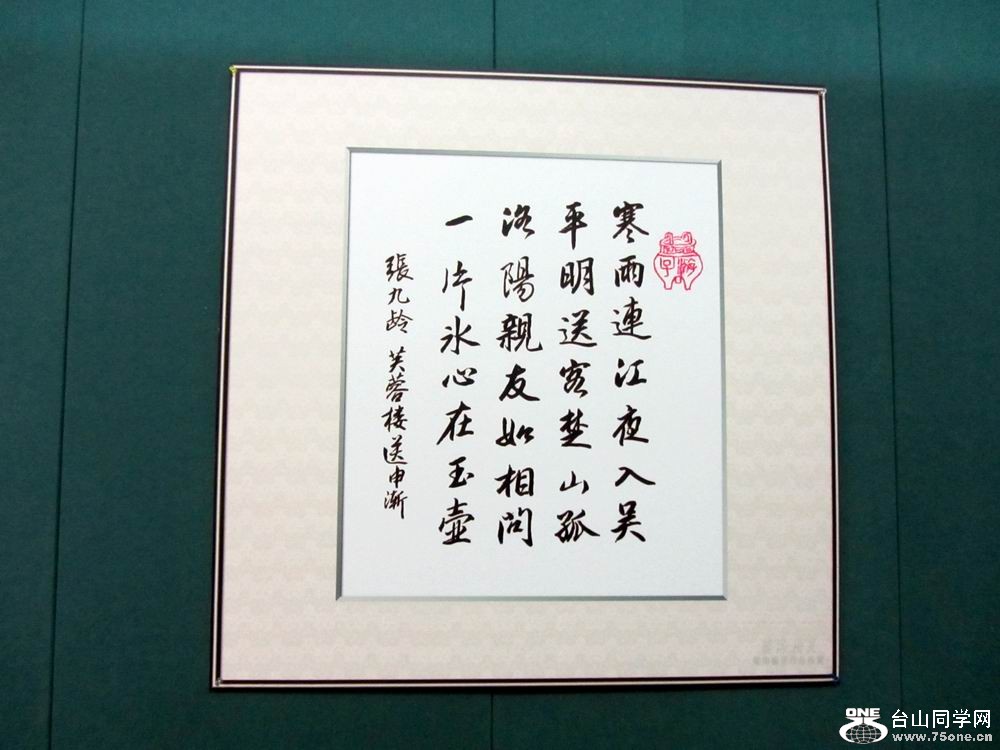 寒雨連江夜入吴
平明送客楚山孤
洛陽親友如相問
一片氷心在玉壺
張九龄 芙蓉楼送申渐
ONE
台山同学网
www.75one.cn